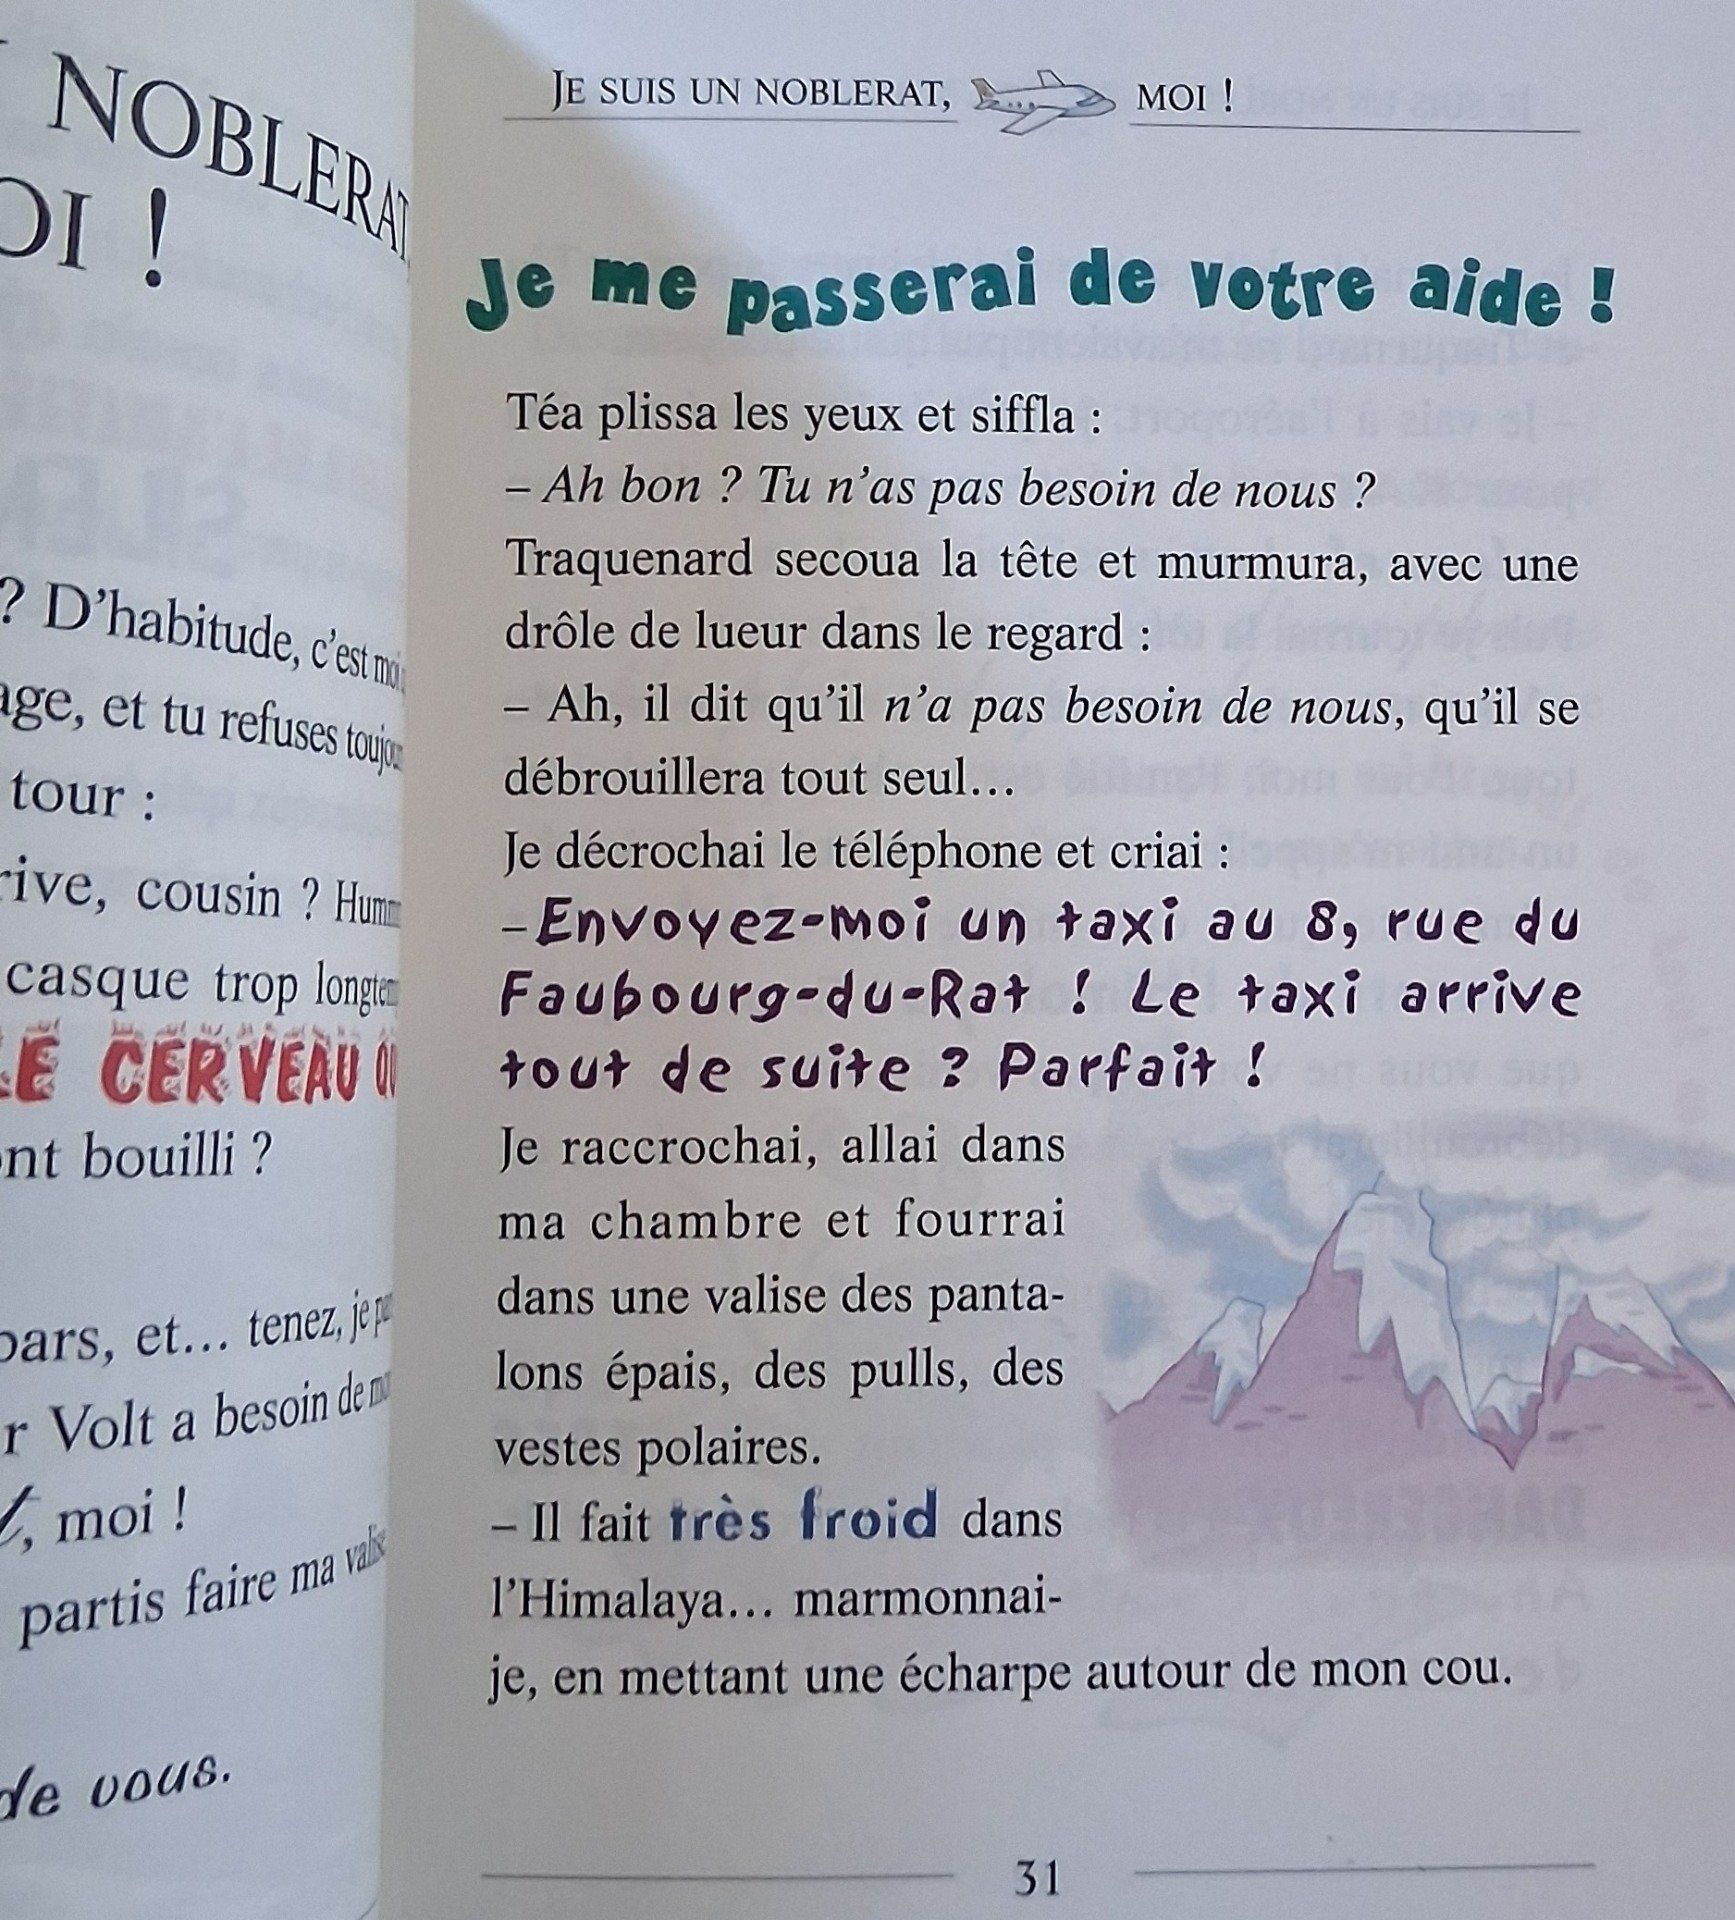 NOBLERAT,
OI !
? D'habitude, c'est moi
age, et tu refuses
tour :
rive, cousin ?
casque trop
LE CERVEAU
nt bouilli ?
pars, et… tenez, je
r Volt a besoin de
, moi !
partis faire ma valise
de vous.
JE SUIS UN NOBLERAT, MOI !
Je me passerai de votre aide !
Téa plissa les yeux et siffla :
– Ah bon ? Tu n'as pas besoin de nous ?
Traquenard secoua la tête et murmura, avec une
drôle de lueur dans le regard :
– Ah, il dit qu'il n'a pas besoin de nous, qu'il se
débrouillera tout seul…
Je décrochai le téléphone et criai :
– Envoyez-moi un taxi au 8, rue du
Faubourg-du-Rat ! Le taxi arrive
tout de suite ? Parfait !
Je raccrochai, allai dans
ma chambre et fourrai
dans une valise des panta-
lons épais, des pulls, des
vestes polaires.
– Il fait très froid dans
l'Himalaya… marmonnai-
je, en mettant une écharpe autour de mon cou.
31